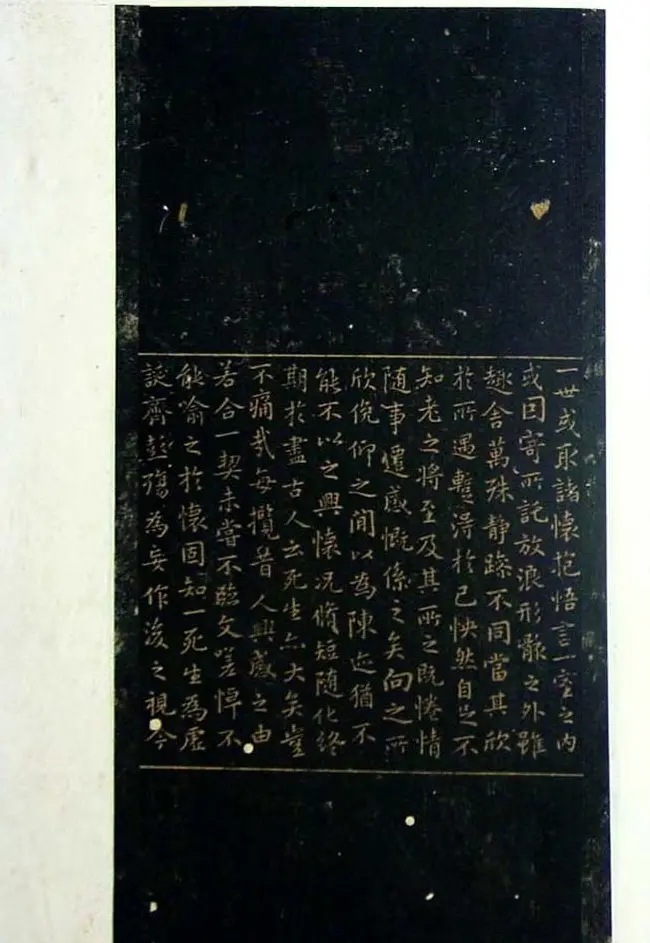 一世或取諸懷抱悟言一室之內
或因寄所託放浪形骸之外雖
趣舍萬殊静躁不同當其欣
於所遇暫得於己怏然自足不
知老之將至及其所之既惓情
随事遷感慨係之矣向之所
欣俛仰之間以為陳迹猶不
能不以之興懷況脩短随化終
期於盡古人云死生亦大矣豈
不痛哉每攬昔人興感之由
若合一契未嘗不臨文嗟悼不
能喻之於懷固知一死生為虛
誕齊彭殤為妄作後之視今